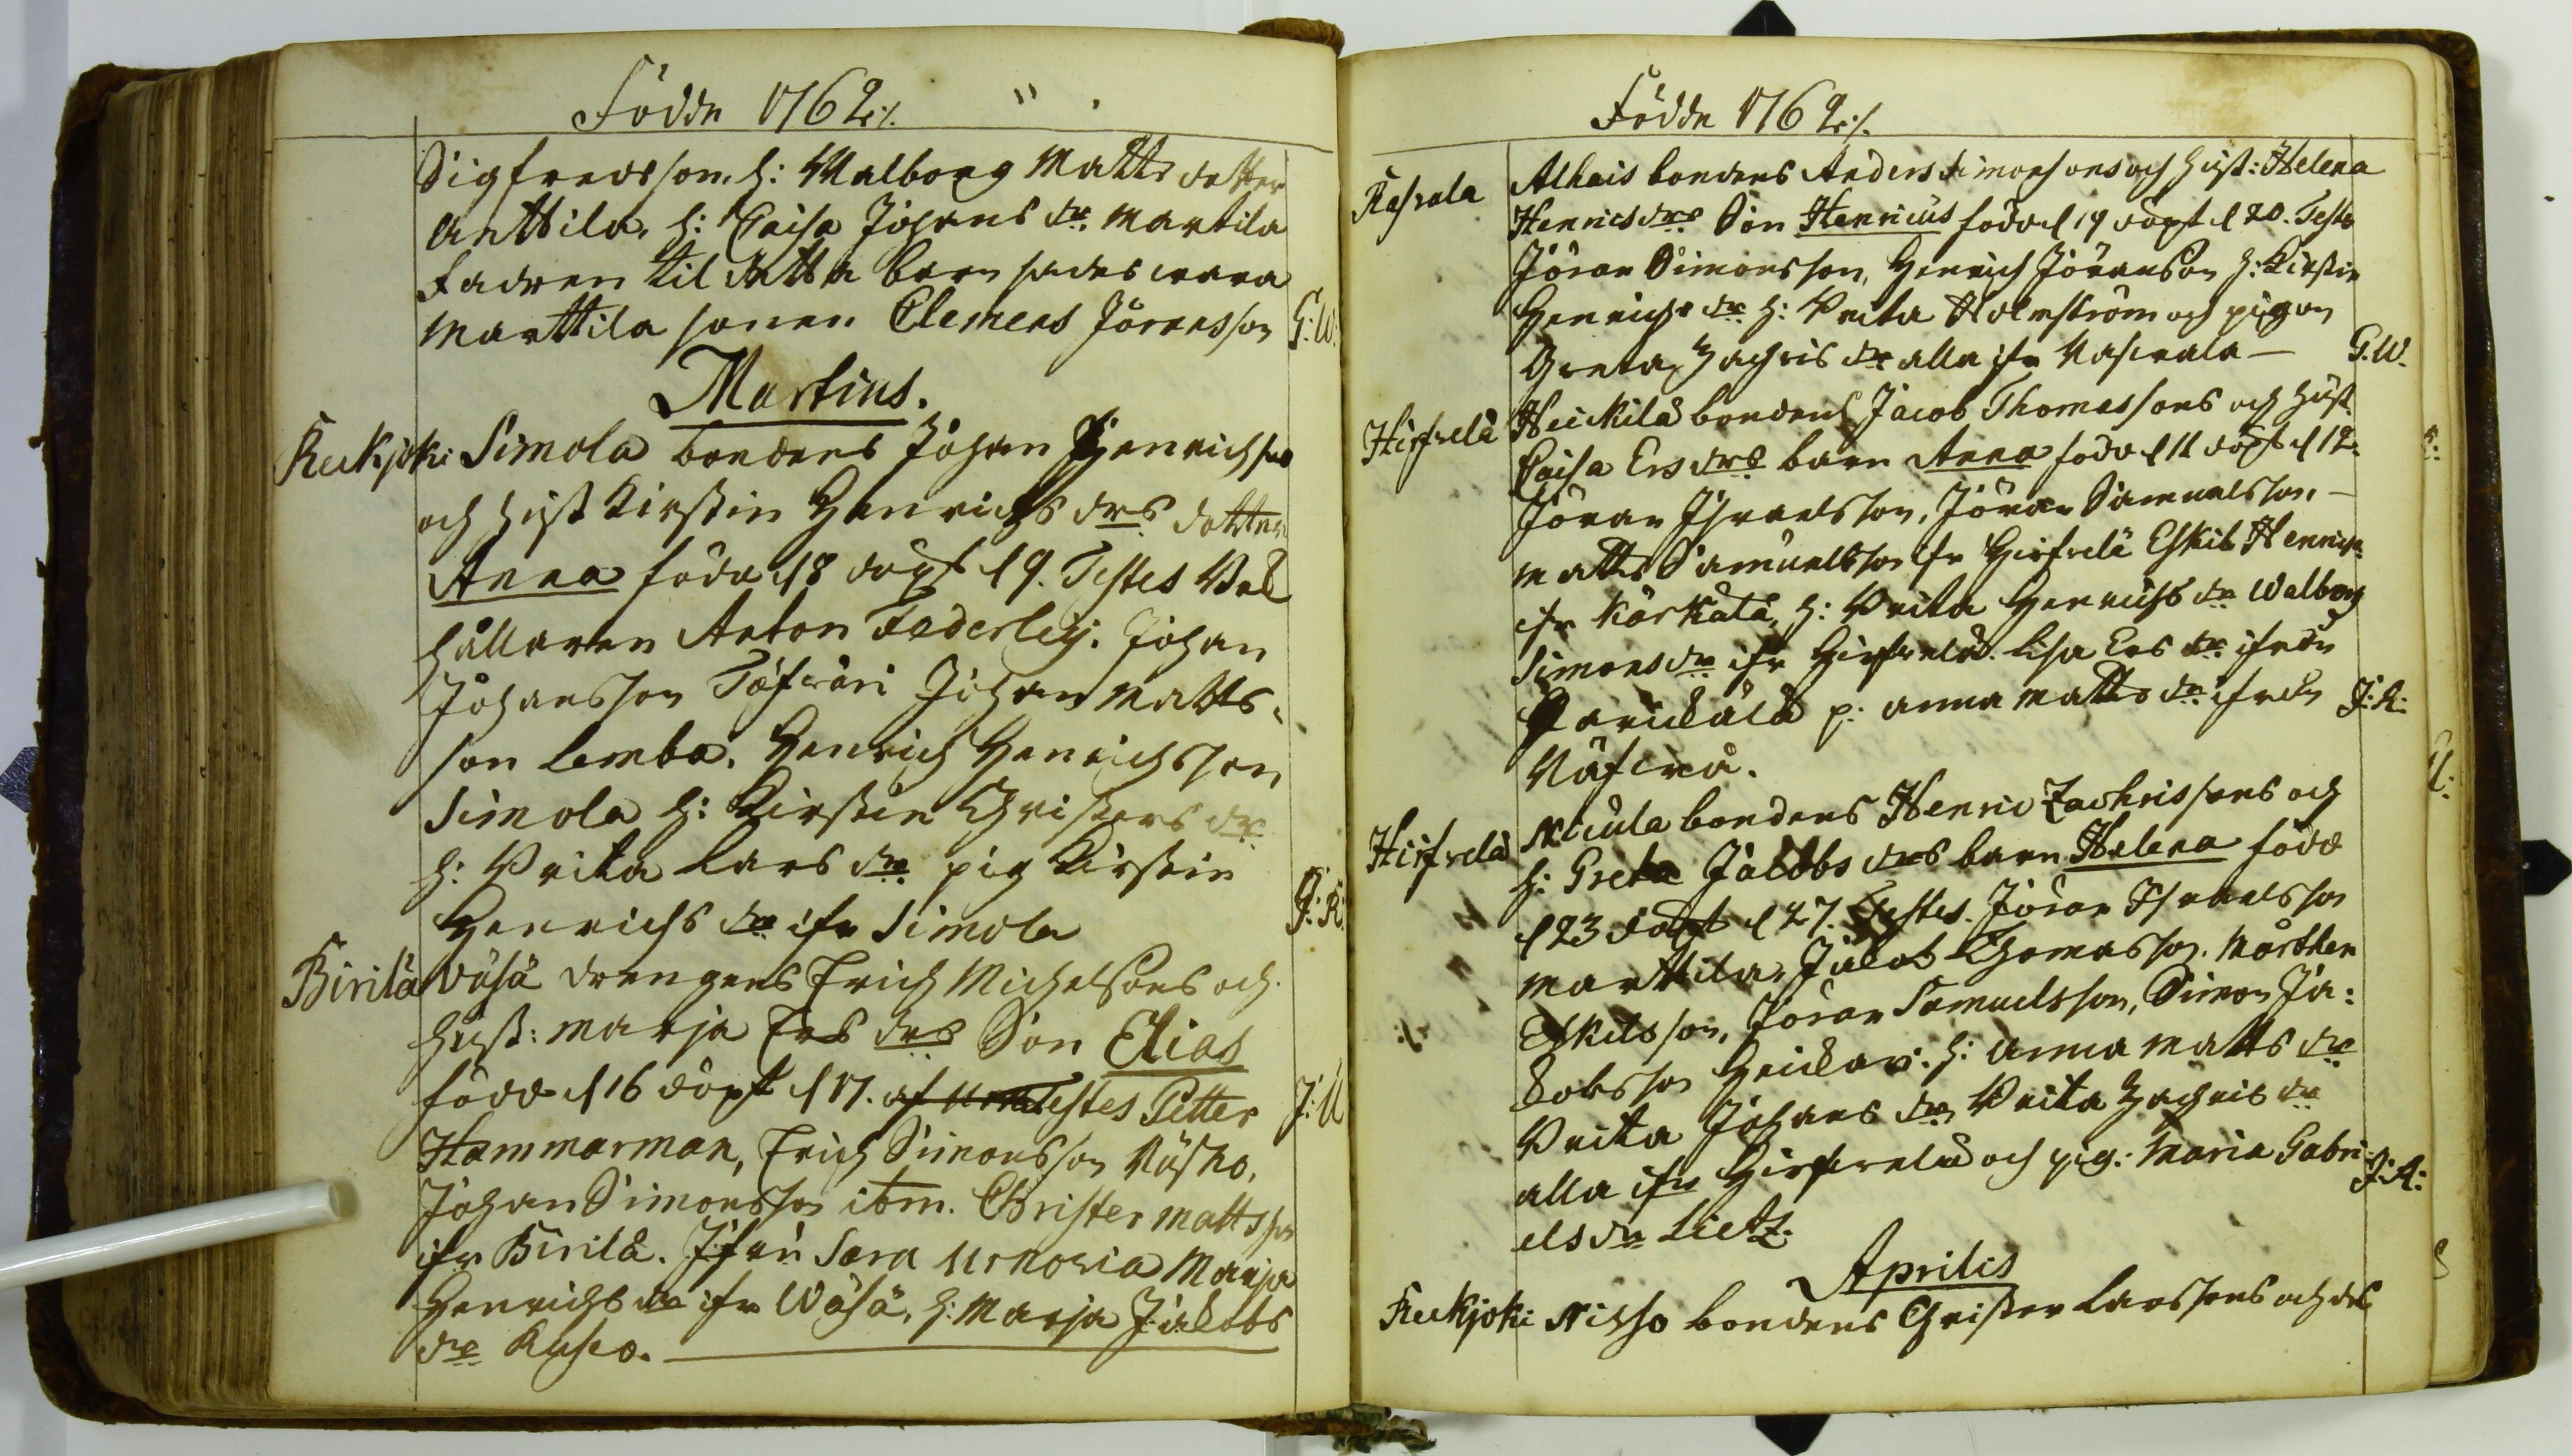 Födde 1762 ./.
Sigfredsson, h: Walborg Matts dotter
Anttila, h: Caisa Johans dr. Martila
Fadren til detta barn sades wara
Marttila sonen Clemens Jöransson G: W.
Martius.
Keckjoki Simola bondens Johan Henrichsons
och hust Kirstin Henrichs drs dotter
Anna född d 8 döpt d 9. Testes Be-
hållaren Anton Federley. Johan
Johansson Töfwäri Johan Matts-
son Lemba. Henrich Henrichsson
Simola h: Kirstin Christers dr
h: Brita Lars dr pig Kirstin
Henrichs dr ifr Simola J: A:
Birilä Väsä drengens Erich Michelsons och
hust: Marja Ers drs Son Elias
född d 16 döpt d 17. Testes Petter J: A
Hammarman, Erich Simonsson Väsko,
Johan Simonsson ibm. Christer Mattsson
ifr Birilä. Jfru Sara Urnovia Marja
Henrichs dr ifr Wäsä, h: Marja Jacobs
dr Kusco.
Födde 1762 ./.
Rasvala Alhais bondens Anders Simonsons och hust: Helena
Henrics drs Son Henricus född d 19 döpt d 20. Testes
Jöran Simonsson, Henrich Jöransson h: Kirstin
Henrichs dr h: Brita Holmström och pigan
Greta Zachris dr alla ifr Rasvala — G. W.
Hirfvelä Heickilä bondens Jacob Thomassons och hust
Caisa Ers drs barn Anna född d 11 döpt d 12.
Jöran Israelsson, Jöran Samuelsson,
Matts Samuelsson ifr Hirfvelä Eskil Henrichs
ifr Kärkälä, h: Brita Henrichs dr Walborg
Simons dr ifr Hirfvelä. Lisa Ers dr ifrån
Parickälä p: Anna Matts dr ifrån J: A:
Näfwä.
Hirfvelä Nicula bondens Henric Zachrissons och
h: Greta Jacobs drs barn Helena född
d 23 döpt d 27. Testes. Jöran Israelsson
Marttila, Jacob Thomasson. Mårthen
Eskelsson, Jöran Samuelsson, Simon Ja-
cobsson Heickari. h: Anna Matts dr
Brita Johans dr, Brita Zachris dr
alla ifr Hirfvelä och pig: Maria Gabri- J: A:
els dr Lietz.
Aprilis
Keckjoki Nisso bondens Christer Larssons och des